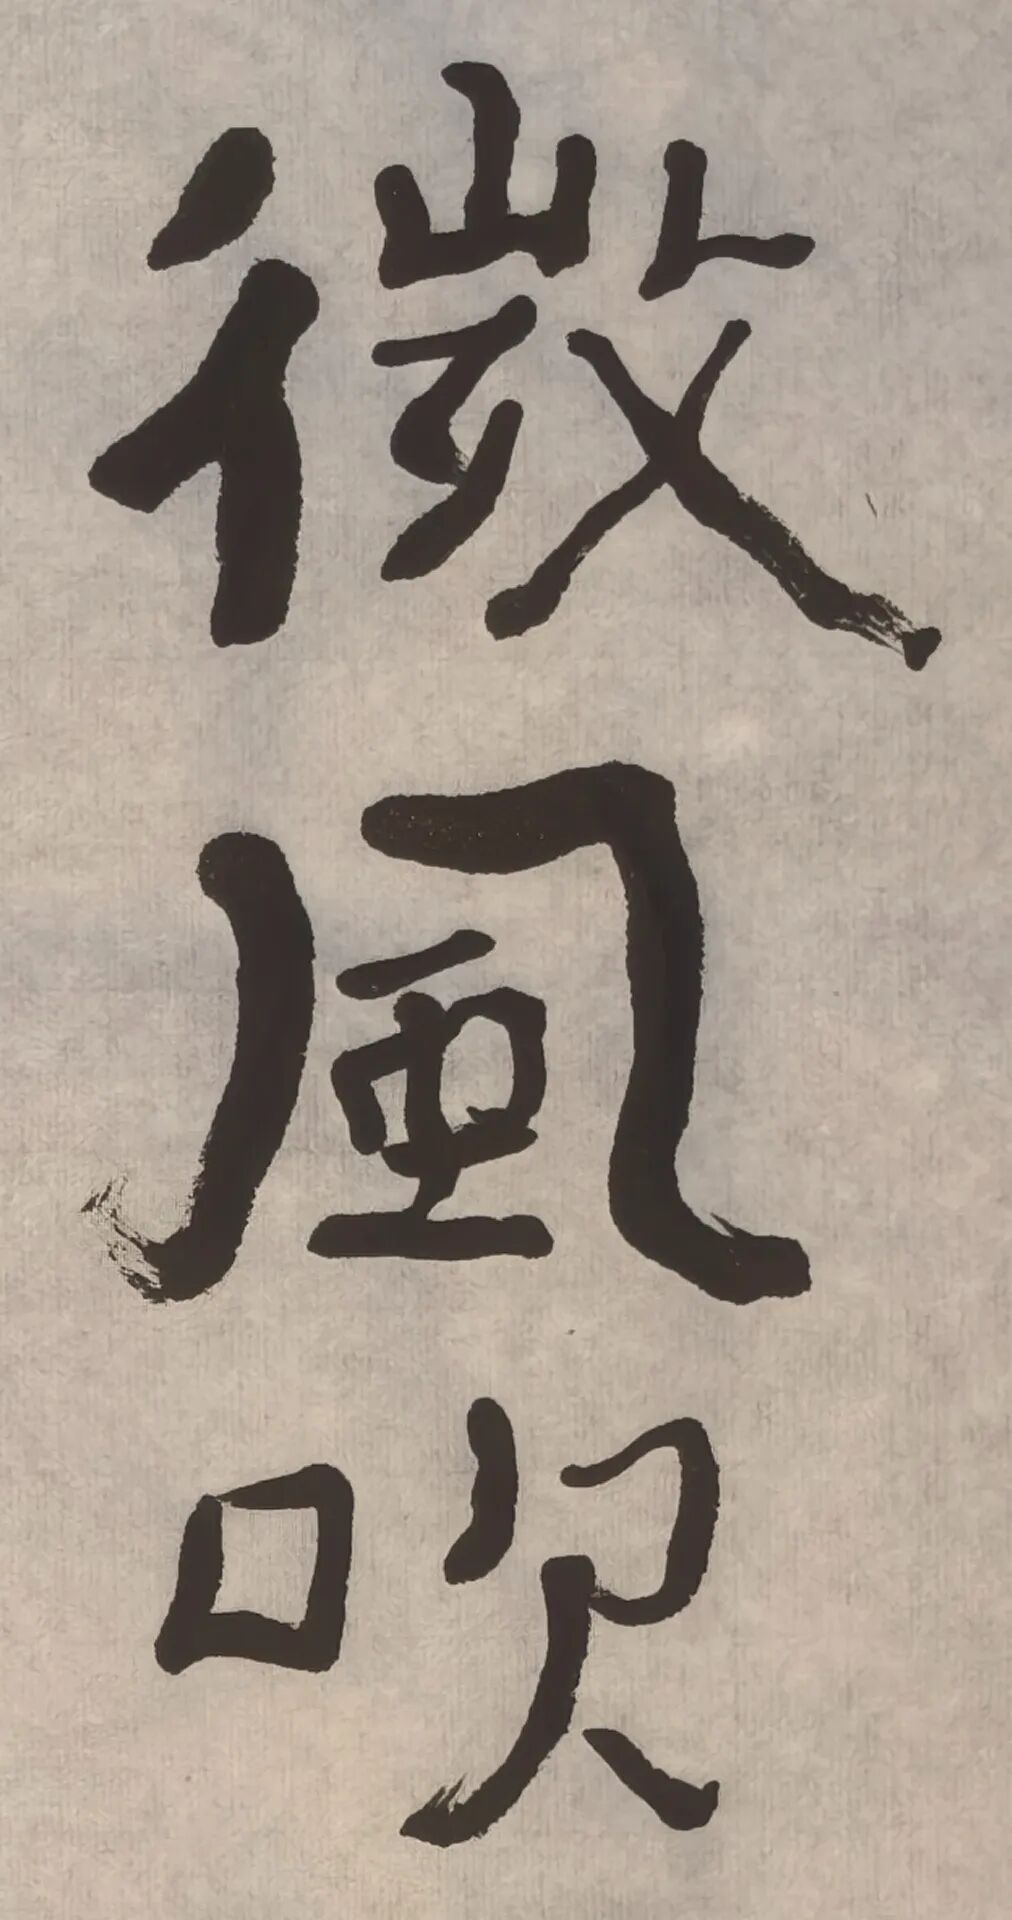 微風吹